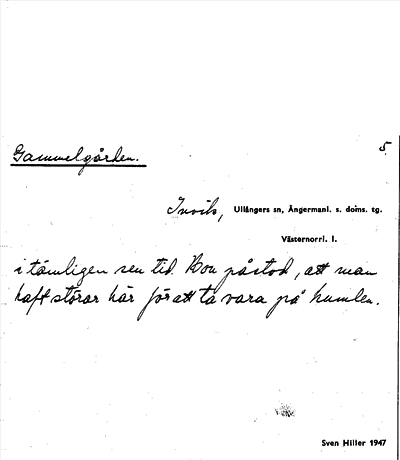 Gammelgården.
5.
Invik, Ullångers sn, Ångermanl. s. doms. tg.
Västernorrl. l.
i tämligen sen tid. Hon påstod, att man
haft störar här för att ta vara på humlen.
Sven Hiller 1947